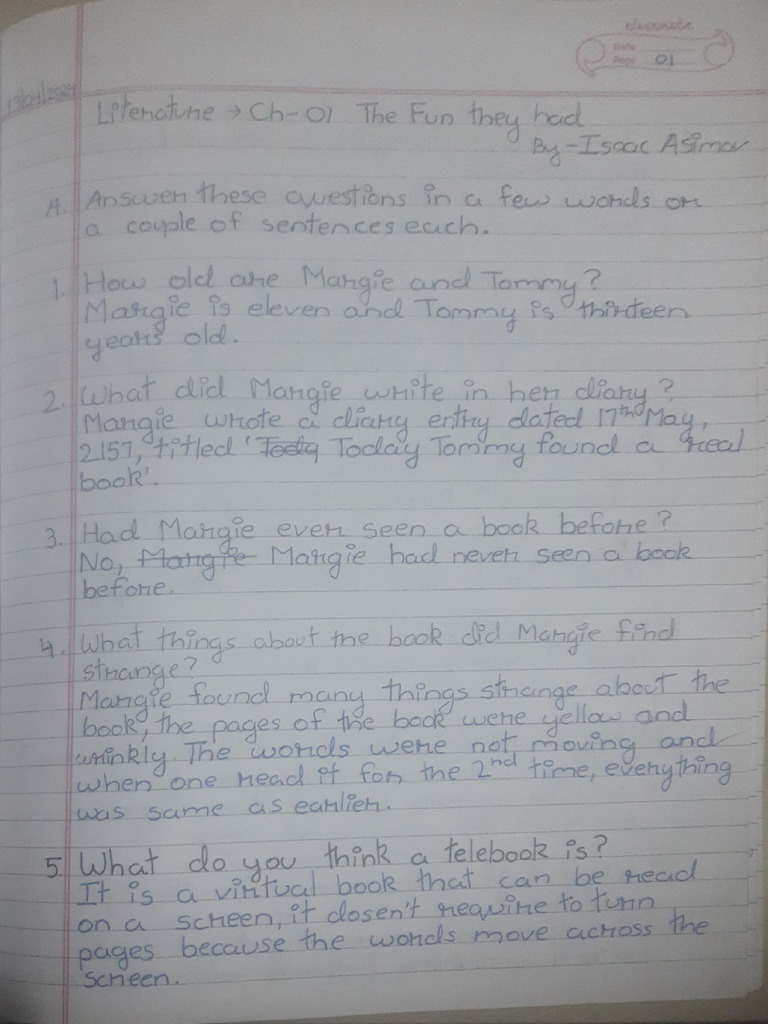 classmate
Date
Page 01
13/04/2024
Literature → Ch-01 The Fun they had
By-Isaac Asimov
A. Answer these questions in a few words or
a couple of sentences each.
1. How old are Margie and Tommy?
Margie is eleven and Tommy is thirteen
years old.
2. What did Margie write in her diary?
Margie wrote a diary entry dated 17th May,
2157, titled 'Tody Today Tommy found a real
book'.
3. Had Margie ever seen a book before?
No, Margie Margie had never seen a book
before.
4. What things about the book did Margie find
strange?
Margie found many things strange about the
book, the pages of the book were yellow and
wrinkly. The words were not moving and
when one read it for the 2nd time, everything
was same as earlier.
5. What do you think a telebook is?
It is a virtual book that can be read
on a screen, it dosen't require to turn
pages because the words move across the
screen.